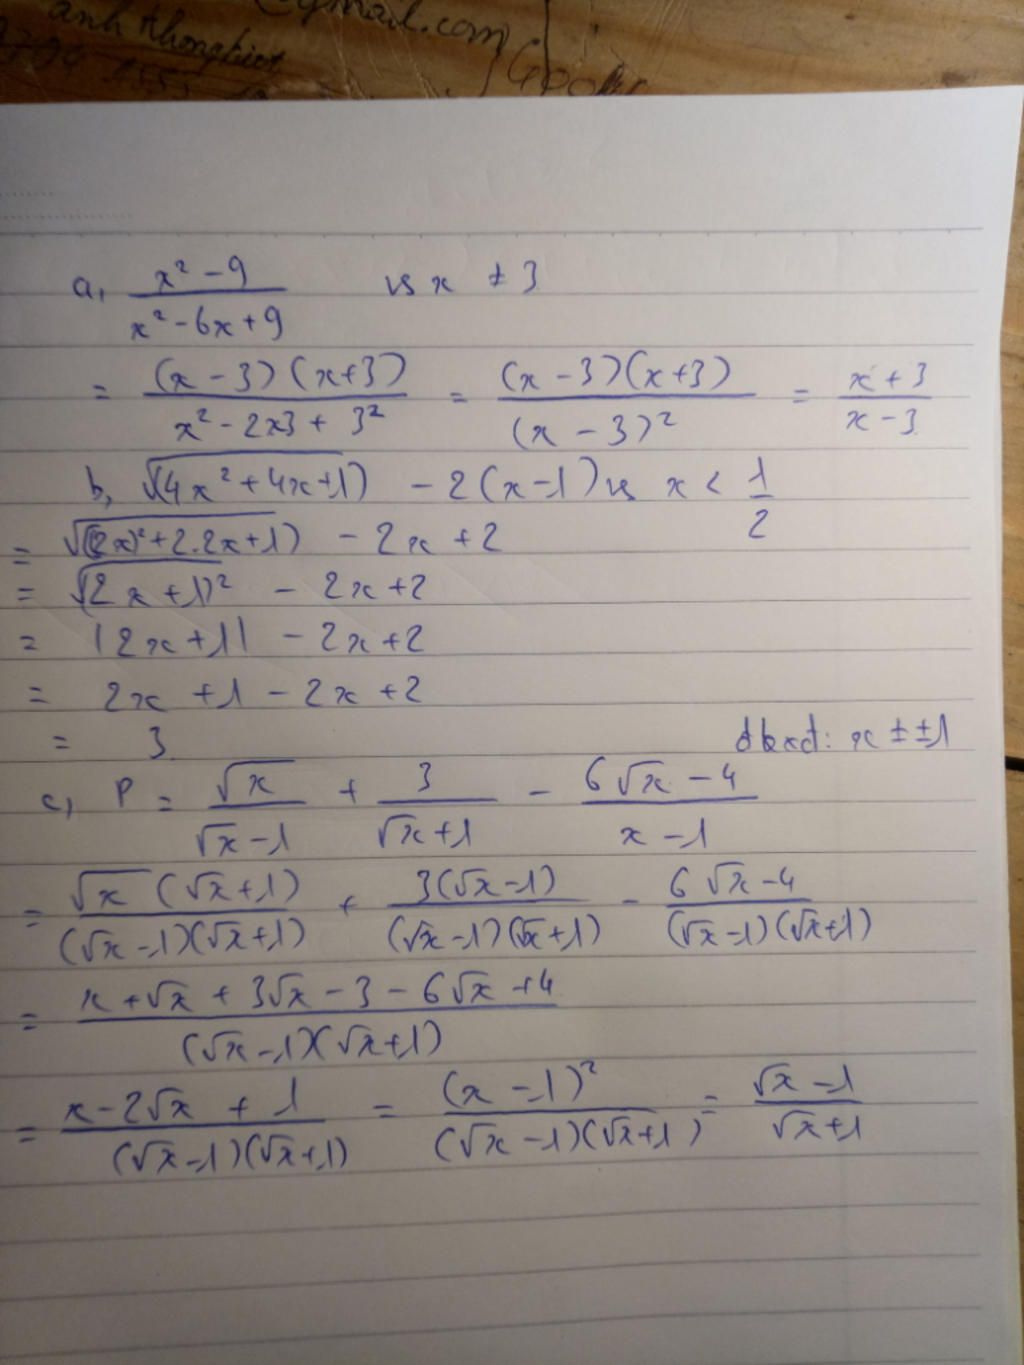 anh khongbiet @gmail.com
a, (x² - 9)/(x² - 6x + 9) vs x ≠ 3
= ((x - 3)(x+3))/(x² - 2x3 + 3²) = ((x - 3)(x+3))/((x - 3)²) = (x + 3)/(x - 3)
b, √(4x² + 4x + 1) - 2(x - 1) vs x < 1/2
= √((2x)² + 2.2x + 1) - 2x + 2
= √(2x + 1)² - 2x + 2
= |2x + 1| - 2x + 2
= 2x + 1 - 2x + 2
= 3
đkxđ: x ± ±1
c, P = √x/(√x - 1) + 3/(√x + 1) - (6√x - 4)/(x - 1)
= (√x (√x + 1))/((√x - 1)(√x + 1)) + (3(√x - 1))/((√x - 1)(√x + 1)) - (6√x - 4)/((√x - 1)(√x + 1))
= (x + √x + 3√x - 3 - 6√x + 4)/((√x - 1)(√x + 1))
= (x - 2√x + 1)/((√x - 1)(√x + 1)) = ((x - 1)²)/((√x - 1)(√x + 1)) = (√x - 1)/(√x + 1)